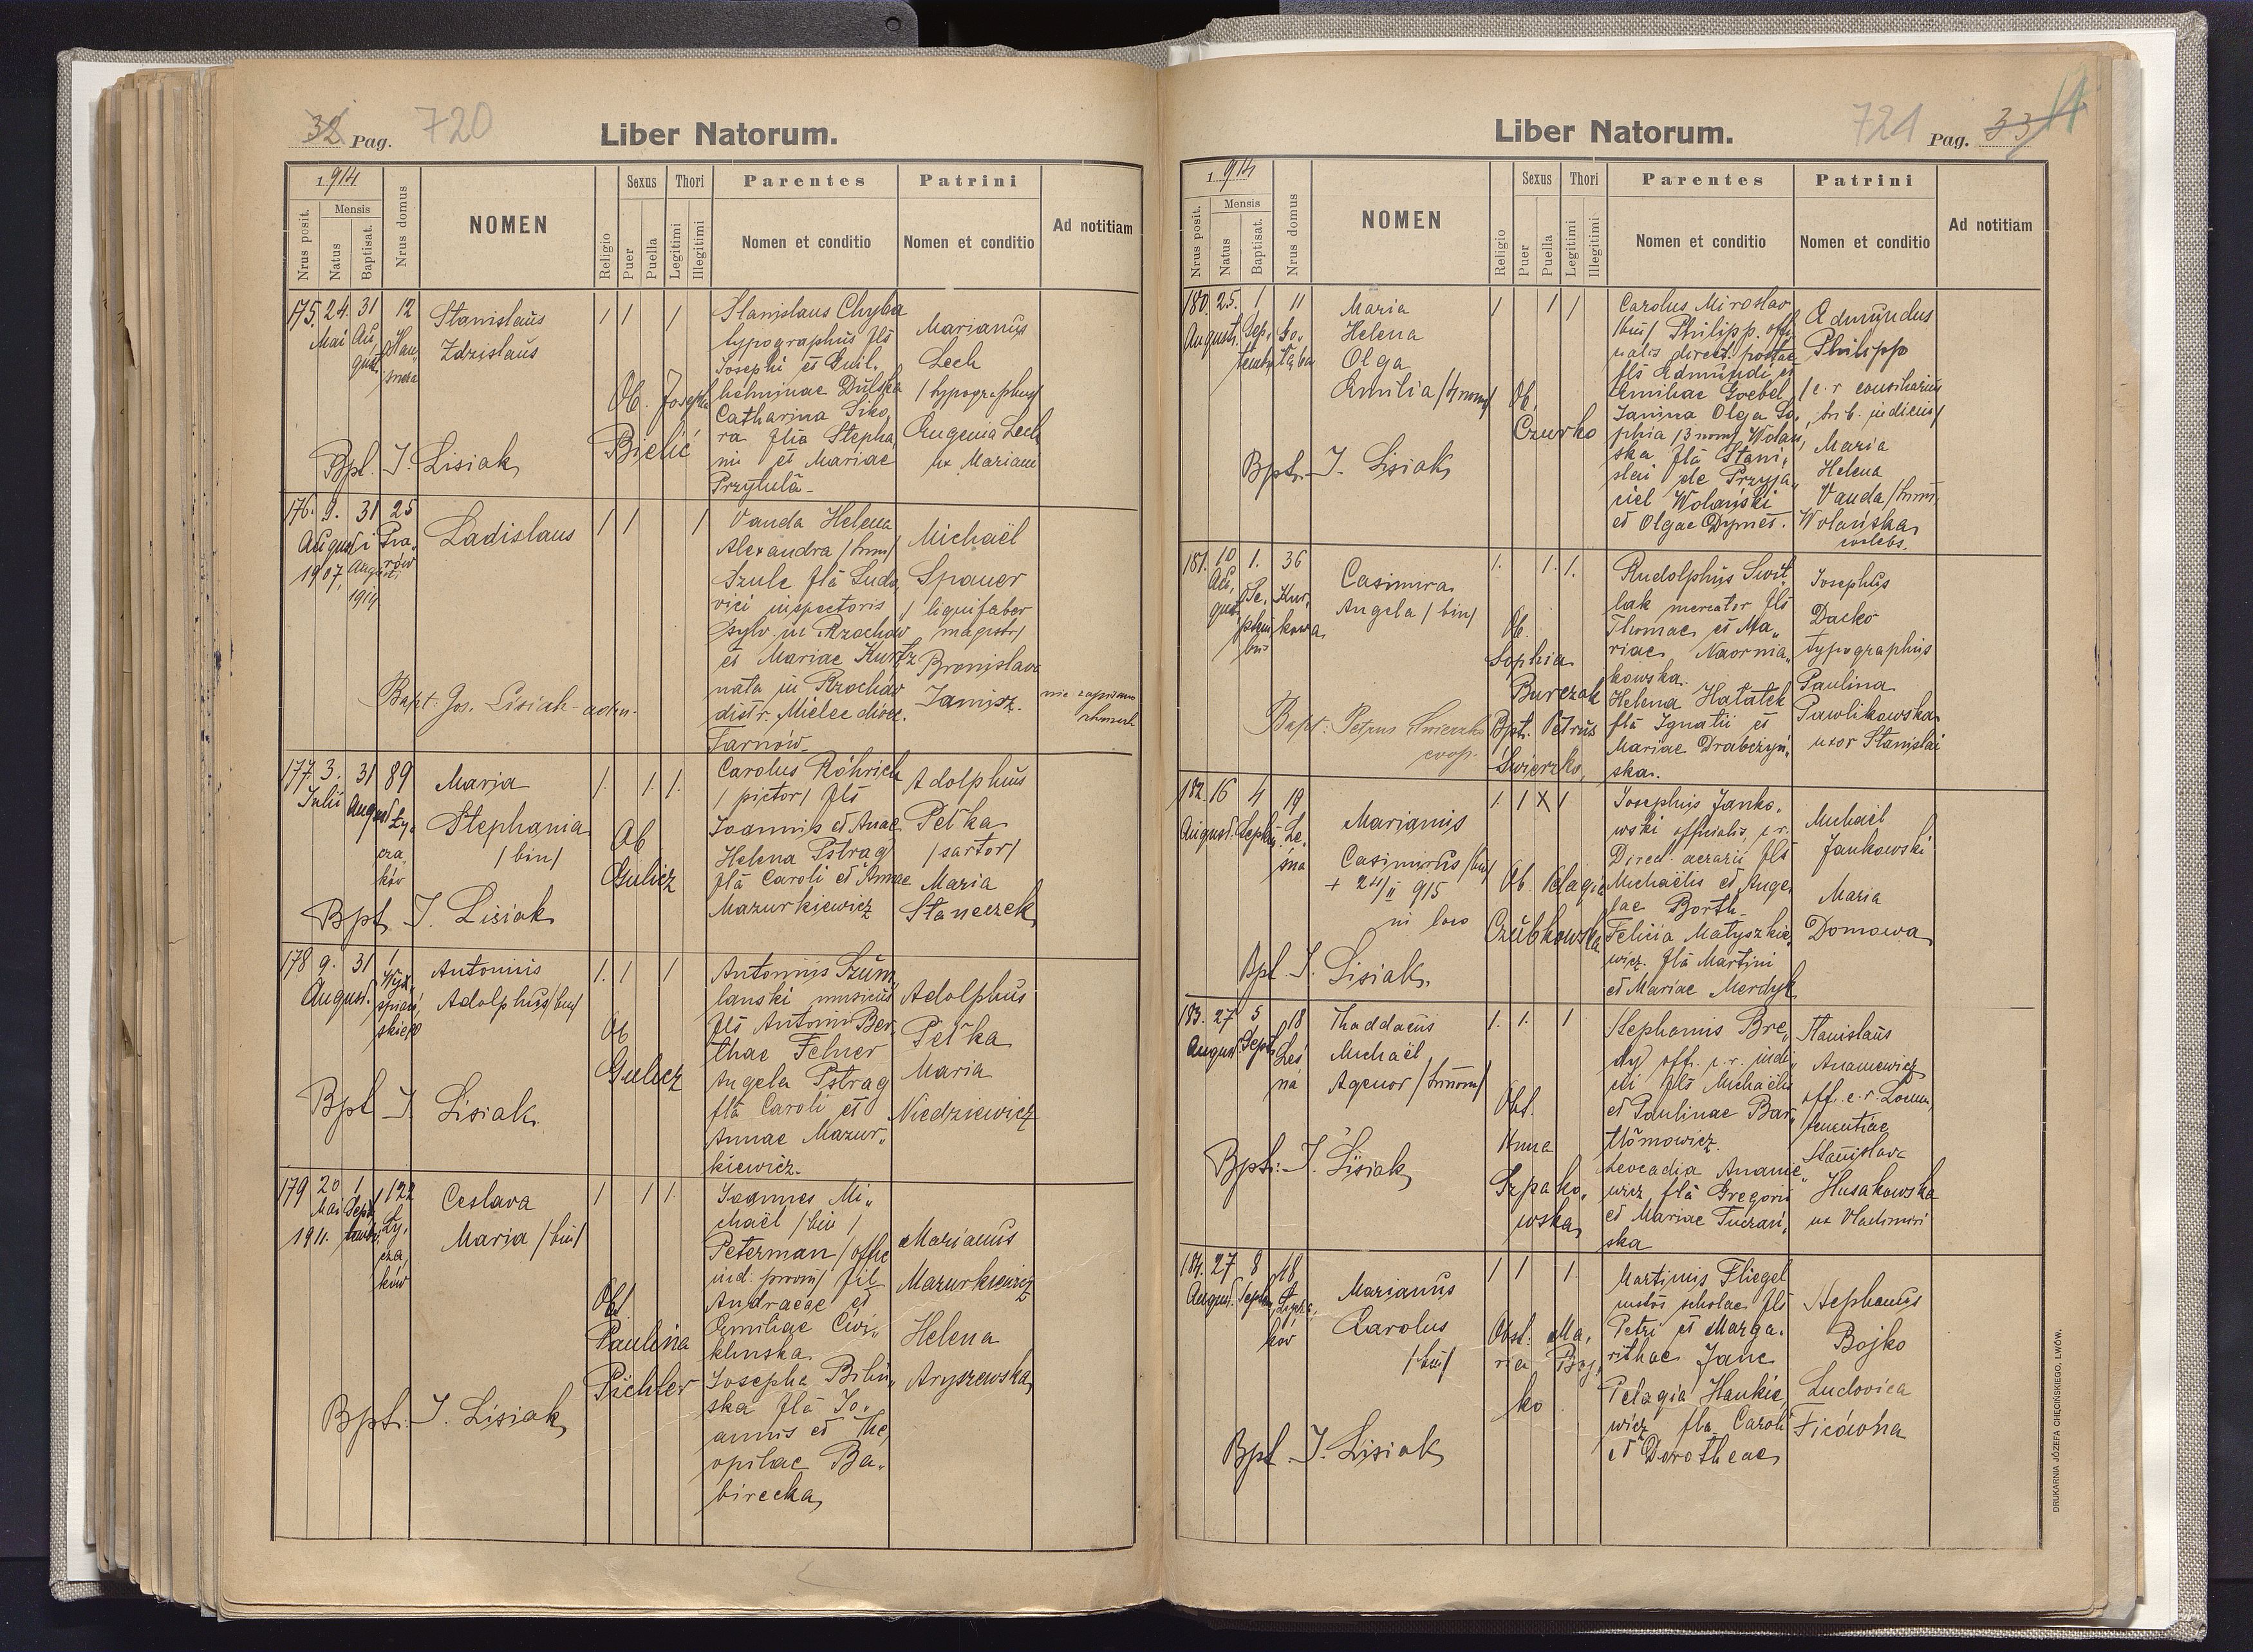 32 Pag. 720
Liber Natorum.
1914
Nrus posit.
Mensis
Natus
Baptisat.
Nrus domus
NOMEN
Religio
Sexus
Puer
Puella
Thori
Legitimi
Illegitimi
Parentes
Nomen et conditio
Patrini
Nomen et conditio
Ad notitiam
175. 24. 31 12
Mai Au
gust
Stanislaus
Zdzislaus
1 1 1
Ob. Joseph
Bielić
Bpt. J. Lisiak
Stanislaus Chyba
typographus fls
Josephi et Guil.
helminae Dulska
Catharina Siko,
ra fla Stepha
ni et Mariae
Przytula
Marianus
Lech
/typographus/
Eugenia Lech
ux Mariani
176. 9. 31 25
Augusti
1907
Augusti
1914
Ladislaus
1 1 1
Bapt: Jos. Lisiak
Vanda Helena
Alexandra /trin/
Szulc fla Ludo,
vici inspectoris
sylv. in Rzochów
et Mariae Kurtz
nata in Rzochów
distr. Mielec dioec.
Tarnów
Michaël
Spauer
magistr/
Bronislava
Janisz.
177 3. 31 89
Julii August Ly,
cza,
ków
Maria
Stephania
/bin/
1. 1. 1.
Ob
Gulicz
Bpt J. Lisiak
Carolus Röhrich
/pictor/ fls
Joannis et Anae
Helena Pstrag
fla Caroli et Annae
Mazurkiewicz
Adolphus
Petka
/sartor/
Maria
Staneczek
178 9. 31 1
August. Wys,
spiań,
skiego
Antonius
Adolphus/bin/
1. 1 1
Ob
Gulicz
Bpt J Lisiak.
Antonius Szum
lanski musicus
fls Antonii Ber
thae Felner
Angela Pstrag
fla Caroli et
Annae Mazur,,
kiewicz.
Adolphus
Petka
Maria
Niedziewicz
179 20 1 122
Mai Sept
1911. tembr. Ly,
cza,
ków
Ceslava
Maria /bin/
1 1 1.
Obst
Paulina
Pichler
Bpt: J. Lisiak
Joannes Mi,,
chaël /bin/
Peterman /offic
fil
Andraeae et
Emiliae Ćwi,,
klinska
Josepha Bilin,,
ska fla Jo,
annis et The,
ophilae Ba,,
birecka
Marianus
Mazurkiewicz
Helena
Aryszewska
Liber Natorum.
721 Pag. 33
1914
Nrus posit.
Mensis
Natus
Baptisat.
Nrus domus
NOMEN
Religio
Sexus
Puer
Puella
Thori
Legitimi
Illegitimi
Parentes
Nomen et conditio
Patrini
Nomen et conditio
Ad notitiam
180. 25. 1 11
August. Sep,
tembr
Maria
Helena
Olga
Emilia /4 nom/
1 1 1
Ob.
Czurko
Bpt. J. Lisiak
Carolus Miroslav
/bin/ Philipp. offi
cialis direct. postae
fls Edmundi et
Emiliae Goebel
Janina Olga So,
phia /3 nom/ Wolań,
ska fla Stani,
slai de Przyja,
ciel Wolański
et Olgae Dymet.
Edmundus
Philipp
/c. r consiliarius
trib. judicius/
Maria
Helena
Vanda /trin/
Wolańska
coelebs.
181. 10 1. 36
Au,
gust Se,
ptem
bris Kur,
kowa
Casimira
Angela /bin/
1. 1. 1.
Ob.
Sophia
Burczak
Bpt. Petrus
Świerzko
Bapt: Petrus
coop.
Rudolphus Swit,
lak mercator fls
Thomae et Ma,,
riae Naornia,,
kowska.
Helena Hałatek
fla Ignatii et
Mariae Drabczyń,
ska.
Josephus
Dacko
typographus
Paulina
Pawlikowska
uxor Stanislai
182. 16 4 19
August. Septem. Le,
śna
Marianus
Casimirus /bin/
+ 24/II 915
in loco
1. 1 X 1
Ob. Pelagia
Czubkowska
Bpt J. Lisiak.
Josephus Janko,
wski officialis c. r.
Direct. aerarii fls
Michaëlis et Ange,
lae Borth
Felicia Matyszkie,
wicz. fla Martini
et Mariae Merdyk
Michaël
Jankowski
Maria
Domowa
183. 27 5 18
August Sept Leś
na
Thaddaeus
Michaël
Agenor /trinom/
1. 1. 1
Obst.
Anna
Szpako,
wska
Bpt: J. Lisiak
Stephanus Bre,
dyj off. c. r. judi,
cii fls Michaëlis
et Paulinae Bar,,
tłomowicz.
Leocadia Ananie,
wicz fla Gregorii
et Mariae Tuczań,
ska
Stanislaus
Ananiewicz
off. c. r. Locum,
tenentiae
Stanislava
Husakowska
ux Vladimiri
184. 27 8 48
August. Septem Łycza,
ków
Marianus
Carolus
/bin/
1 1 1.
Obst: Ma,
ria Boj,
ko
Bpt. J. Lisiak
Martinus Fliegel
custos scholae fls
Petri et Marga,
rithae Jane
Pelagia Hankie,
wicz fla Caroli
et Dorotheae
Stephanus
Bojko
Ludovica
DRUKARNIA JÓZEFA CHĘCIŃSKIEGO, LWÓW.